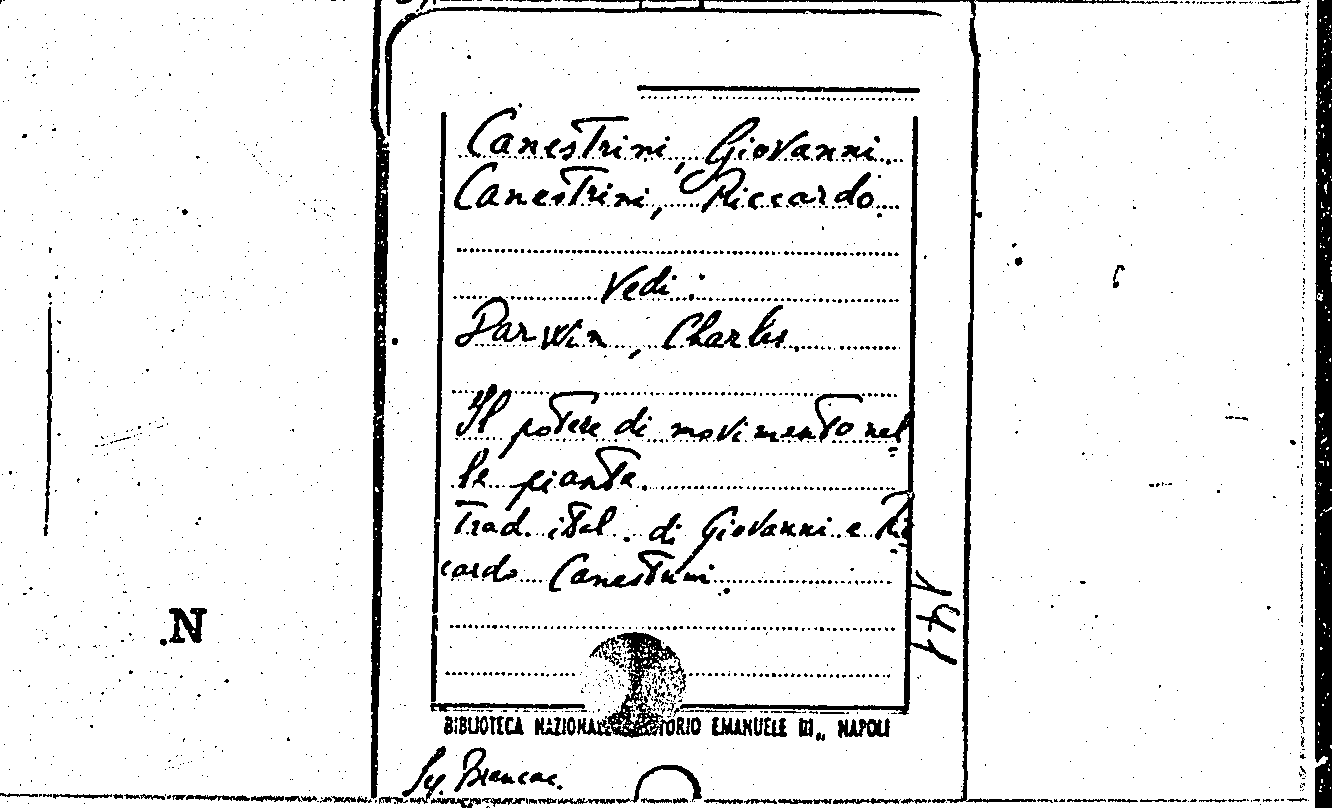 Canestrini, Giovanni.
Canestrini, Riccardo.
Vedi:
Darwin, Charles.
Il potere di movimento nel=
le piante.
Trad. ital. di Giovanni e Ric=
cardo Canestrini.
144
.N
BIBLIOTECA NAZIONALE VITTORIO EMANUELE III„ NAPOLI
Brancac.